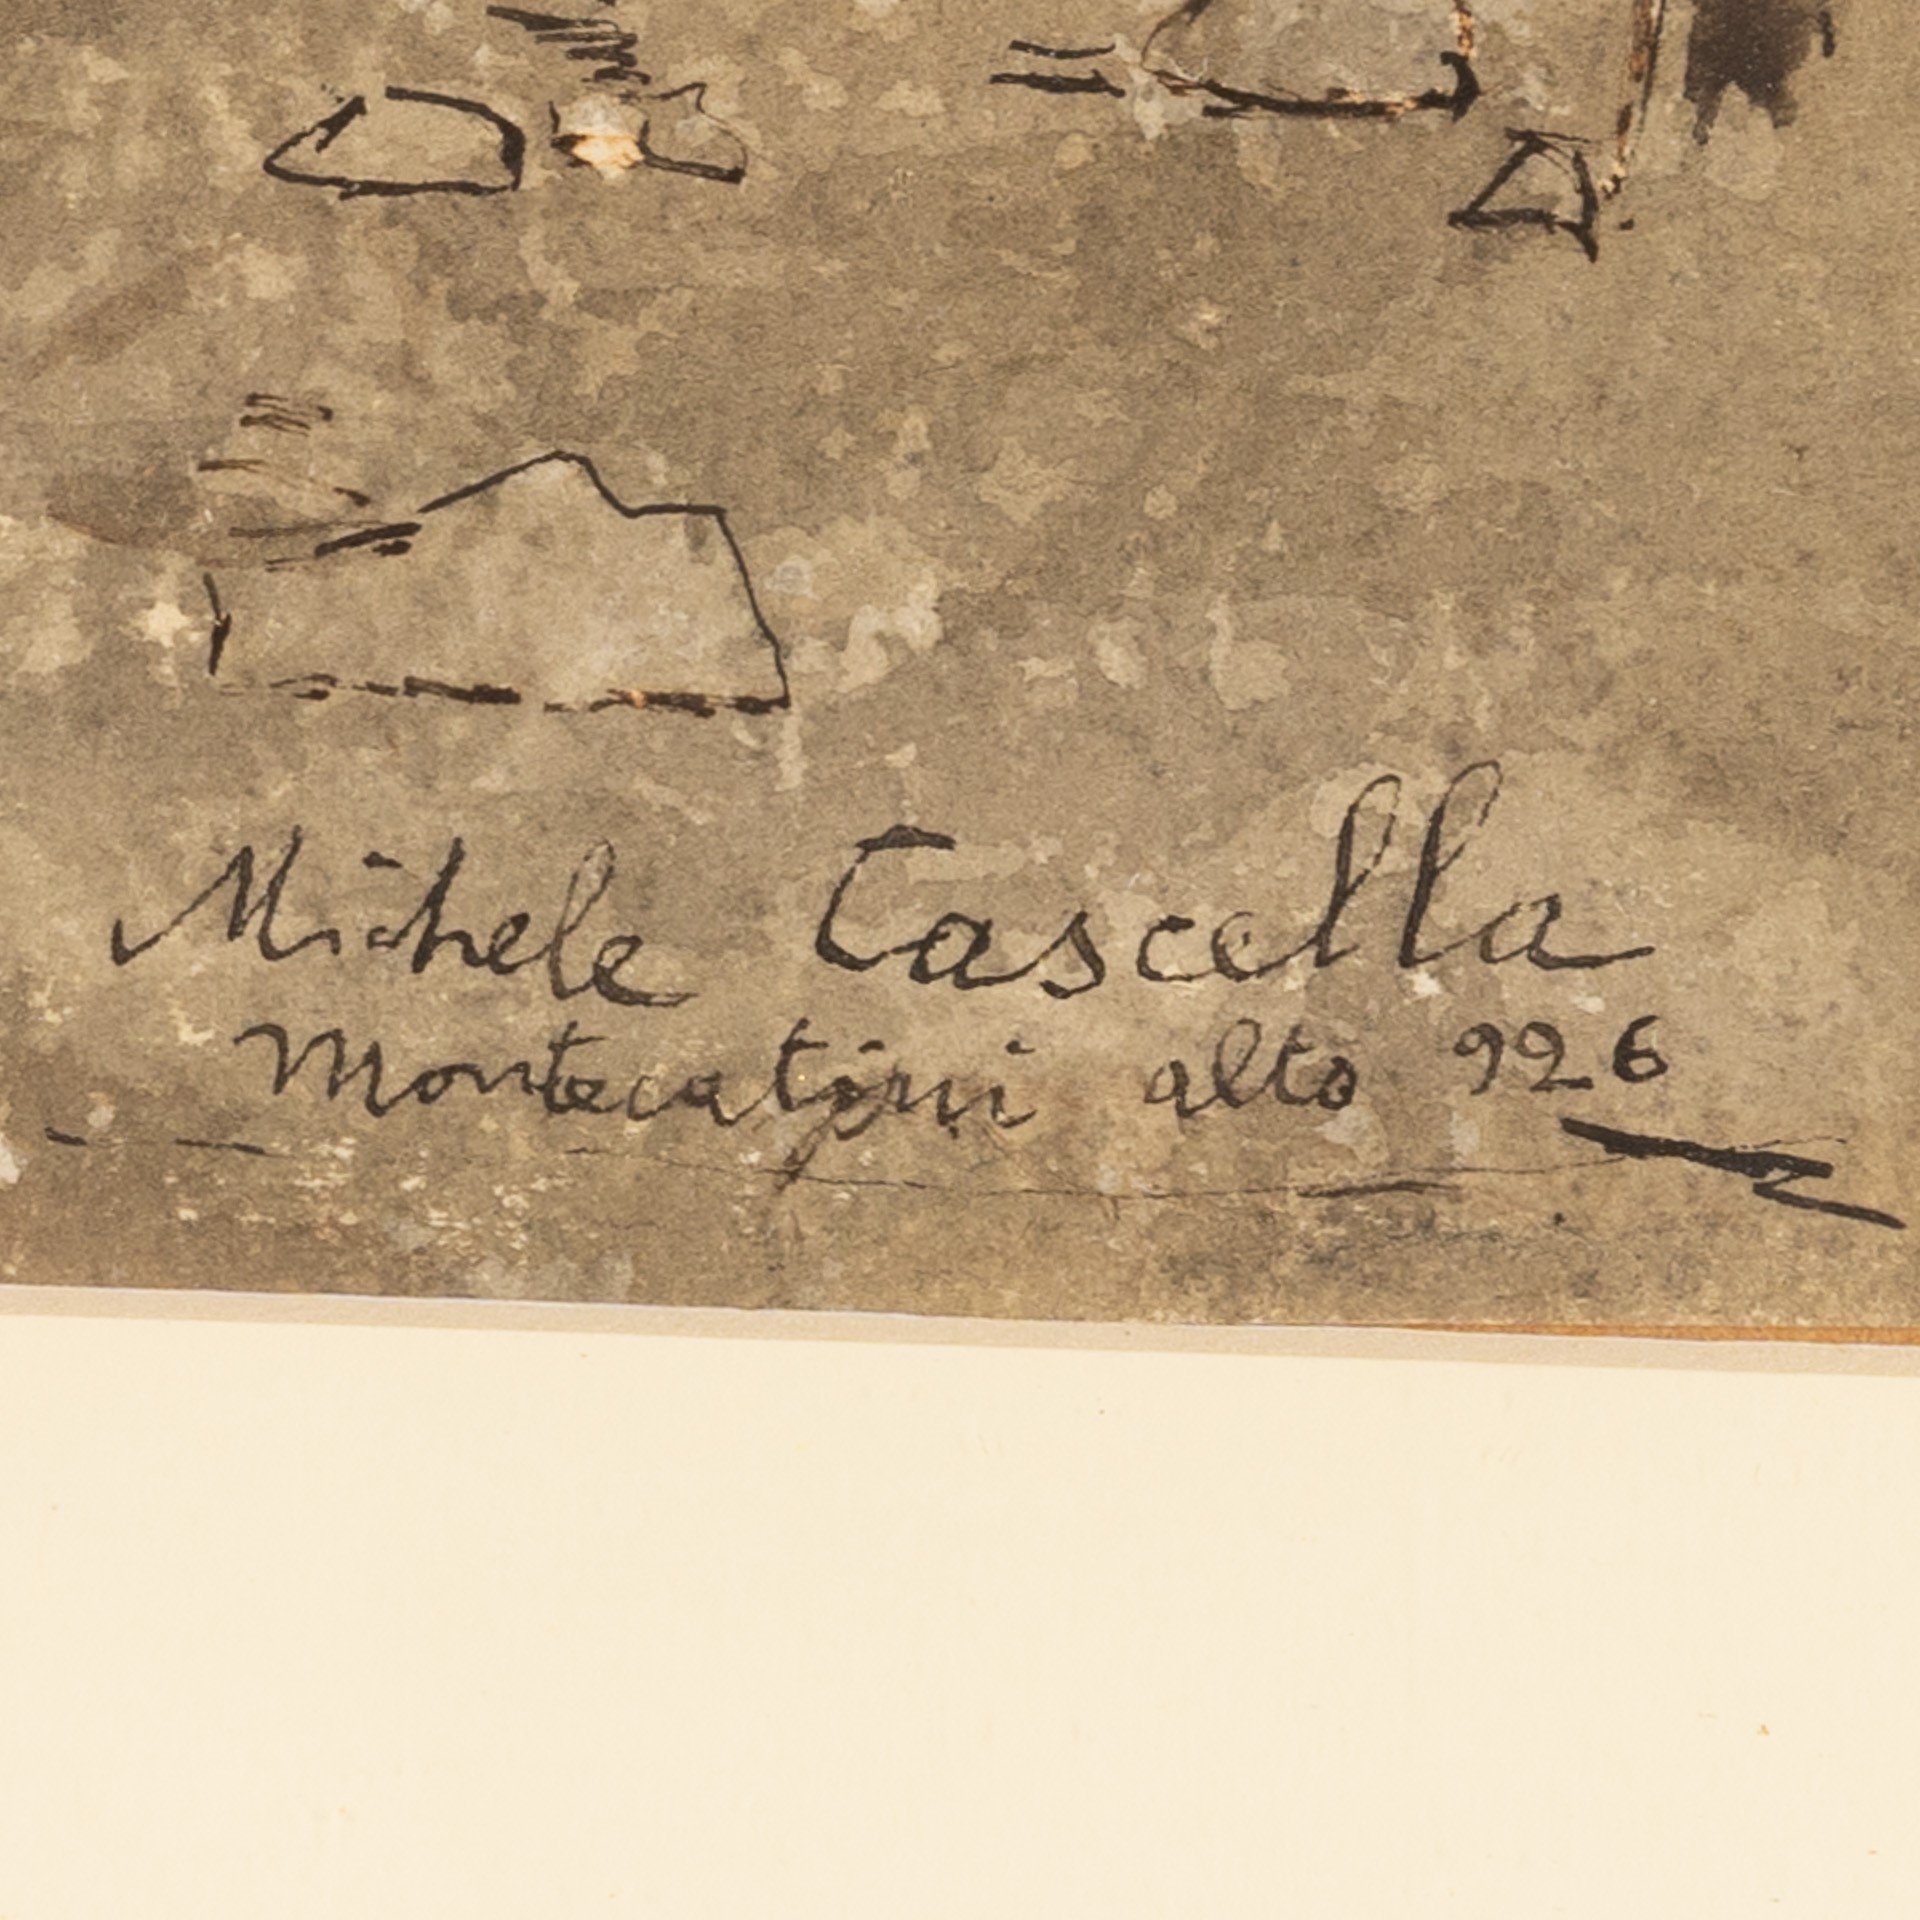 Michele Cascella
Montecatini alto 926